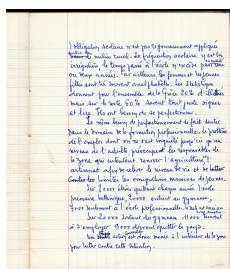 L'obligation scolaire n'est pas rigoureusement appliquée
en milieu rural. La fréquentation scolaire y est très
irrégulière, le temps passé à l'école n'excède pas trois
ou deux années. Par ailleurs les femmes et les jeunes
filles sont très souvent analphabètes. Les statistiques
donnent pour l'ensemble de la Grèce 20% d'illettrés
mais sur le reste, 60% savent tout juste signer
et lire. Ils ont besoin de se perfectionner.
Le même besoin de perfectionnement se fait sentir
dans le domaine de la formation professionnelle. Le problème
de l'emploi dont on ne s'est inquiété jusqu'ici qu'au
niveau de l'adulte préoccupe les responsables de
la zone qui entendent rénover l'agriculture,
artisanat afin de relever le niveau de vie et de lutter
contre les émigrations massives de jeunes.
Sur 2000 élèves quittant chaque année l'école
primaire technique, 2000 entrent au gymnase,
seulement à l'école professionnelle
Sur 20.000 sortant des gymnases 11.000 trouvent
à s'employer 9000 doivent quitter le pays.
Un centre actif est donc mené à l'intérieur de la zone
pour lutter contre cette situation.